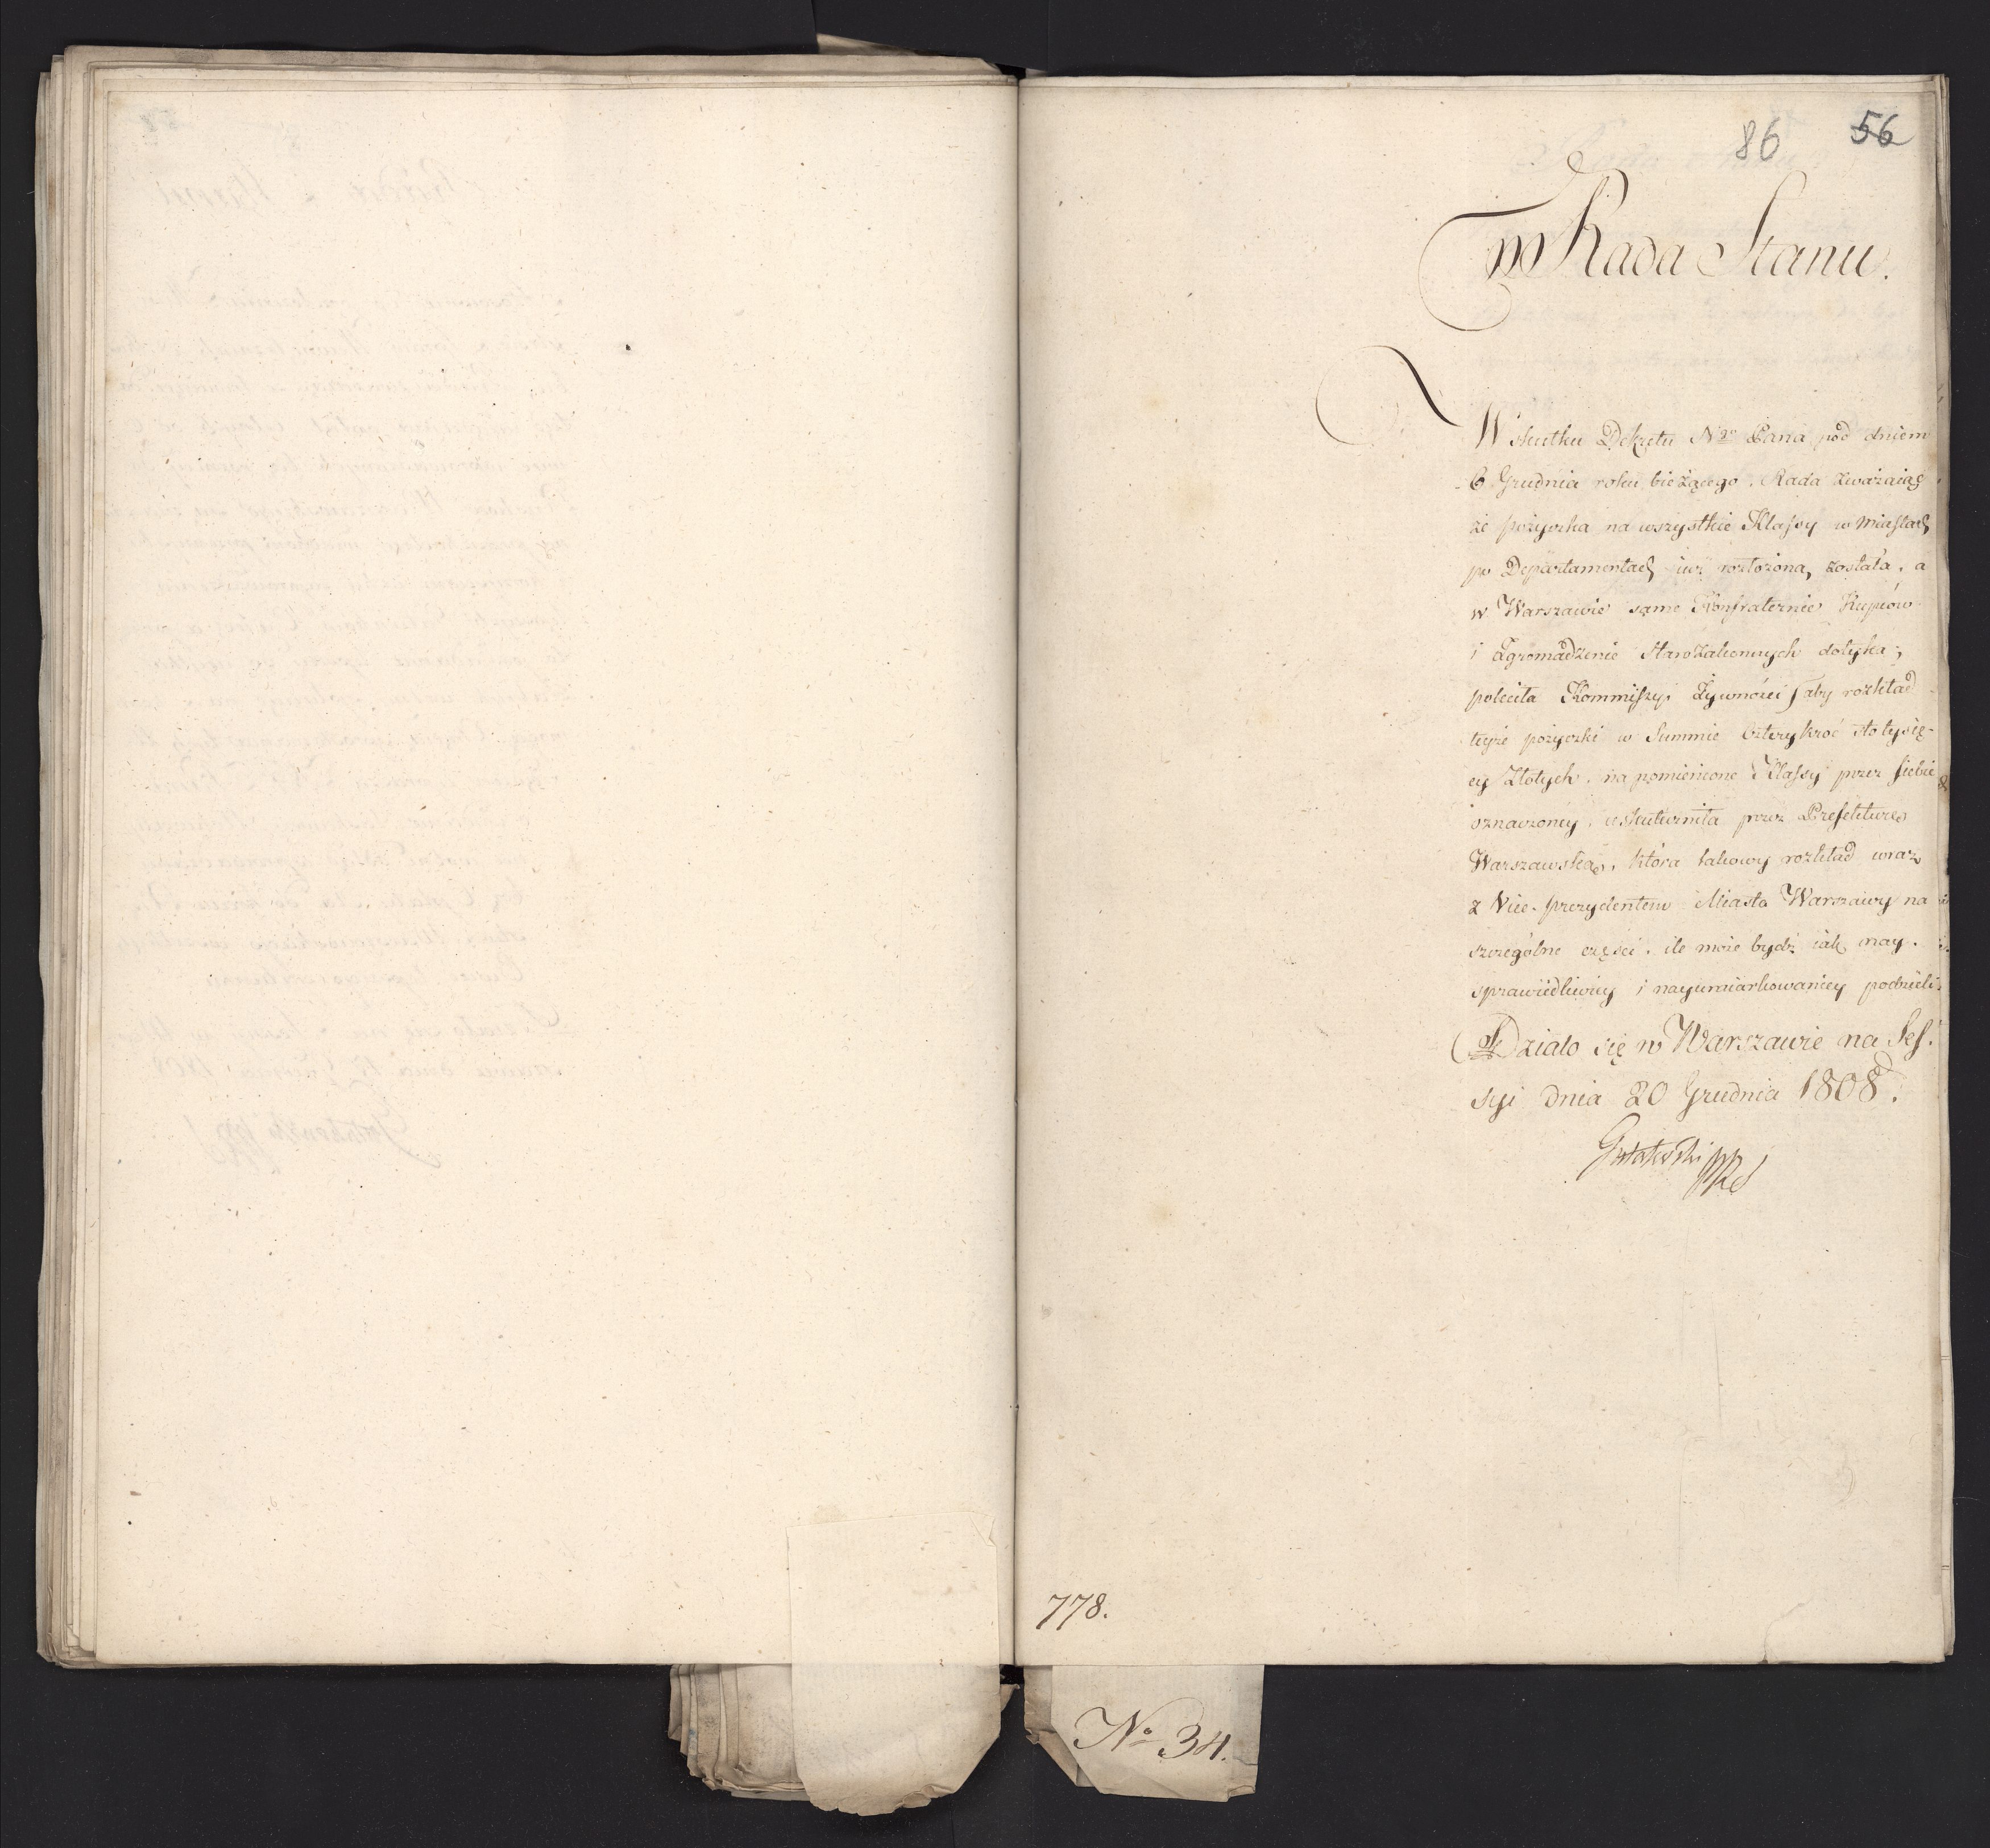 86 56
w Rada Stanu.
W skutku Dekretu Ngo Pana pod dniem
6 Grudnia roku bieżącego, Rada zważaiąc
że pożyczka na wszystkie Klassy w Miastach
po Departamentach iuż rozłożona, została, a
w Warszawie same Konfraternie Kupców
i Zgromadzenie Starozakonnych dotyka;
poleciła Kommissyi Żywności aby rozkład
teyże pożyczki w Summie Czterykroć sto tysię-
cy Złotych, na pomienione Klassy przez siebie
oznaczoney, uskuteczniła przez Prefekturę
Warszawską, która takowy rozkład wraz
z Vice-prezydentem Miasta Warszawy na
szczególne części, ile może bydź iak nay-
sprawiedliwiey i nayumiarkowaniey podzieli.
Działo się w Warszawie na Ses-
syi dnia 20 Grudnia 1808.
Gutakowski PRS
778.
No 34.